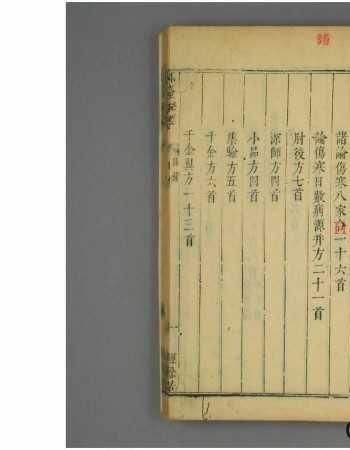 諸論傷寒八家合一十六首
論傷寒日數病源并方二十一首
肘後方七首
深師方四首
小品方四首
集驗方五首
千金方六首
千金翼方一十三首
外臺秘要
一
經餘居